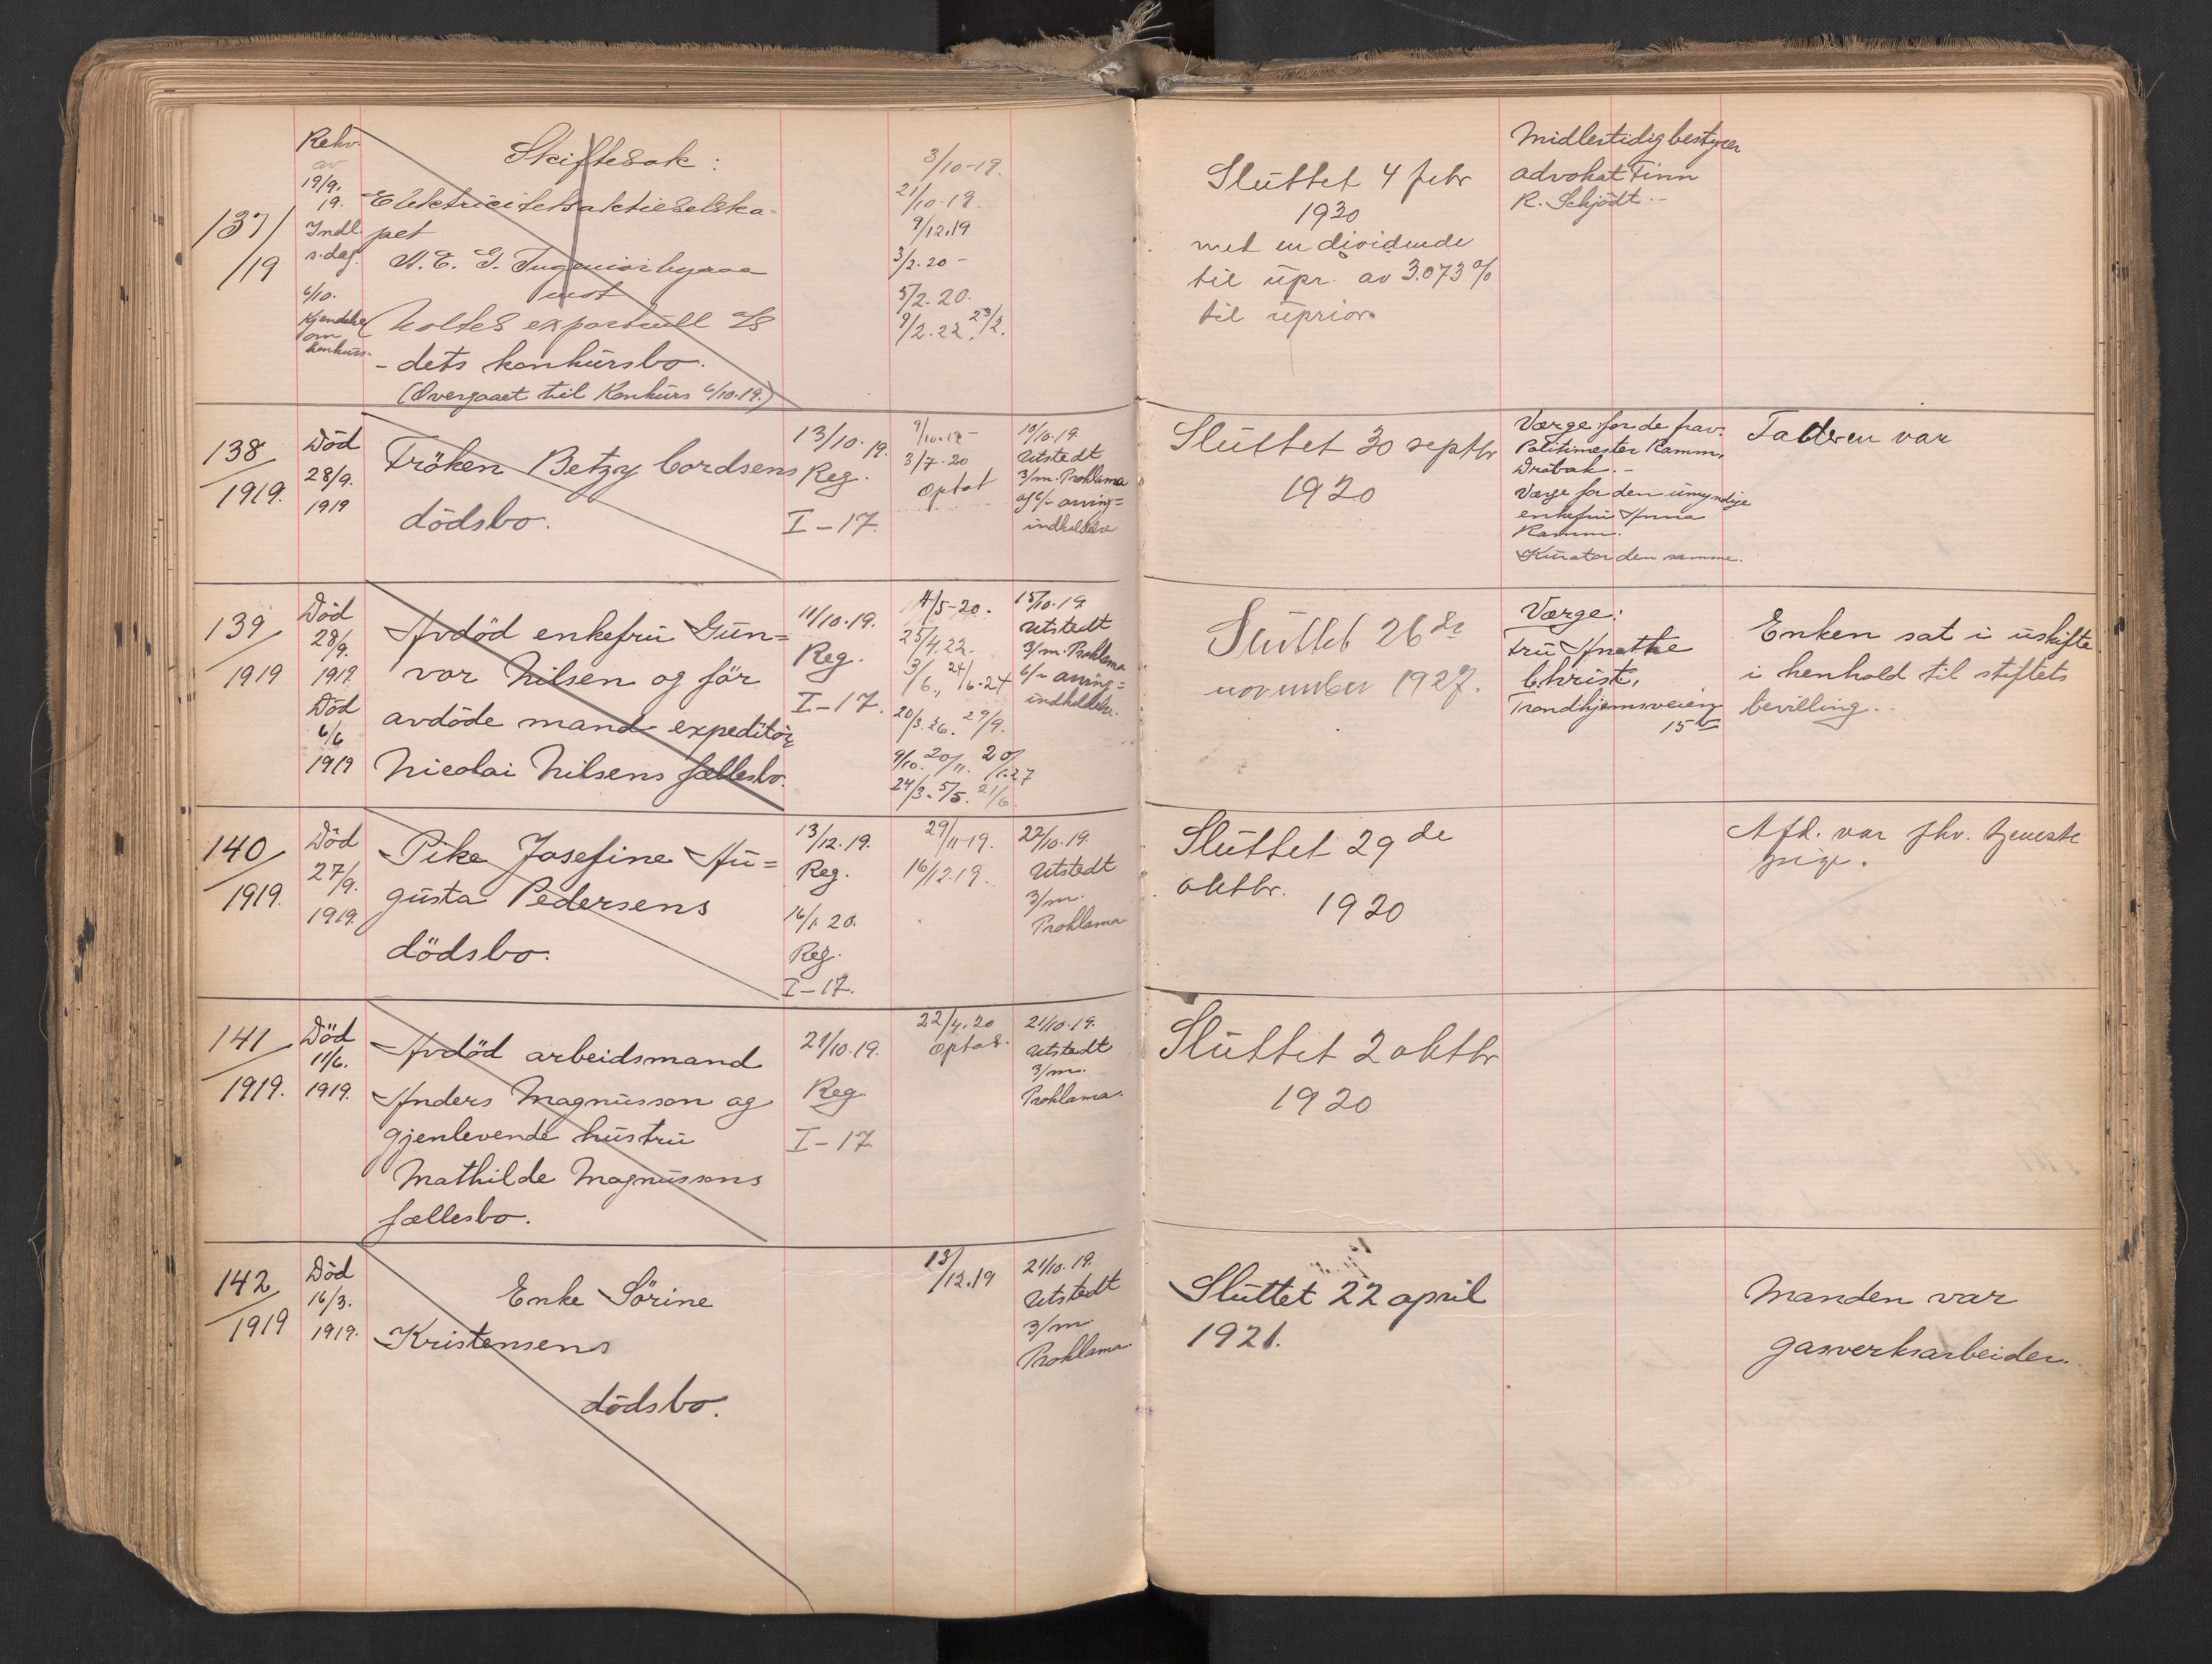 137/19
Rekv.
av
19/9.
19.
Indl.
s.dag.
6/10.
Kjendelse
om
konkurs.
Skiftesak:
Elektricitetsaktieselska-
pet
A. E. G. Ingeniörbyraa
mot
Holtes exportull A/S
- dets konkursbo.
(Overgaaet til Konkurs 6/10.19.)
3/10-19.
21/10-19.
9/12.19
3/2.20 -
5/2.20.
9/2.22. 23/2.
Sluttet 4 febr
1920
met en dividende
til upr. av 3.073%
til uprior.
Midlertidig bestyrer
advokat Finn
R. Schjödt.
138/1919.
Död
28/9.
1919
Fröken Betzy Cordsens
dödsbo.
13/10.19.
Reg.
I-17.
9/10.19-
3/7.20
Optat
10/10.19.
Utstedt
3/m. Proklama
og 6/- arving=
indkaldelse
Sluttet 30 septbr
1920
Værge for de frav.
Politimester Ramm,
Dröbak.-
Værge for den umyndige
enkefru Anna
Ramm.
Kurator den samme.
Faderen var
139/1919
Död
28/9.
1919.
Död
6/6
1919
Avdöd enkefru Gun=
vor Nilsen og för
avdöde mand expeditör
Nicolai Nilsens fællesbo.
11/10.19.
Reg.
I-17.
4/5-20.
25/4.22.
3/6., 24/6-24
20/3.26. 29/9.
9/10. 20/11. 20/1.27
24/3. 5/5. 21/6.
15/10.19.
Utstedt
3/m. Proklama
6/- arving=
indkaldelse.
Sluttet 26de
november 1927.
Værge:
Fru Anathe
Christ,
Trondhjemsveien
15b
Enken sat i uskifte
i henhold til stiftets
bevilling.
140/1919.
Död
27/9.
1919.
Pike Josefine Au=
gusta Pedersens
dödsbo.
13/12.19.
Reg.
16/1.20.
Reg.
I-17.
29/11-19.
16/12.19.
22/10.19.
Utstedt
3/m.
Proklama
Sluttet 29de
oktbr.
1920
Afd. var fhv. tjeneste
pige.
141/1919.
Död
11/6.
1919.
Avdöd arbeidsmand
Anders Magnusson og
gjenlevende hustru
Mathilde Magnussons
fællesbo.
21/10.19.
Reg.
I-17
22/4.20
Optat.
21/10.19.
Utstedt
3/m.
Proklama.
Sluttet 2 oktbr
1920
142/1919
Död
16/3.
1919.
Enke Sörine
Kristensens
dödsbo.
13/12.19
21/10.19.
Utstedt
3/m.
Proklama.
Sluttet 22 april
1921.
Manden var
gasverksarbeider.